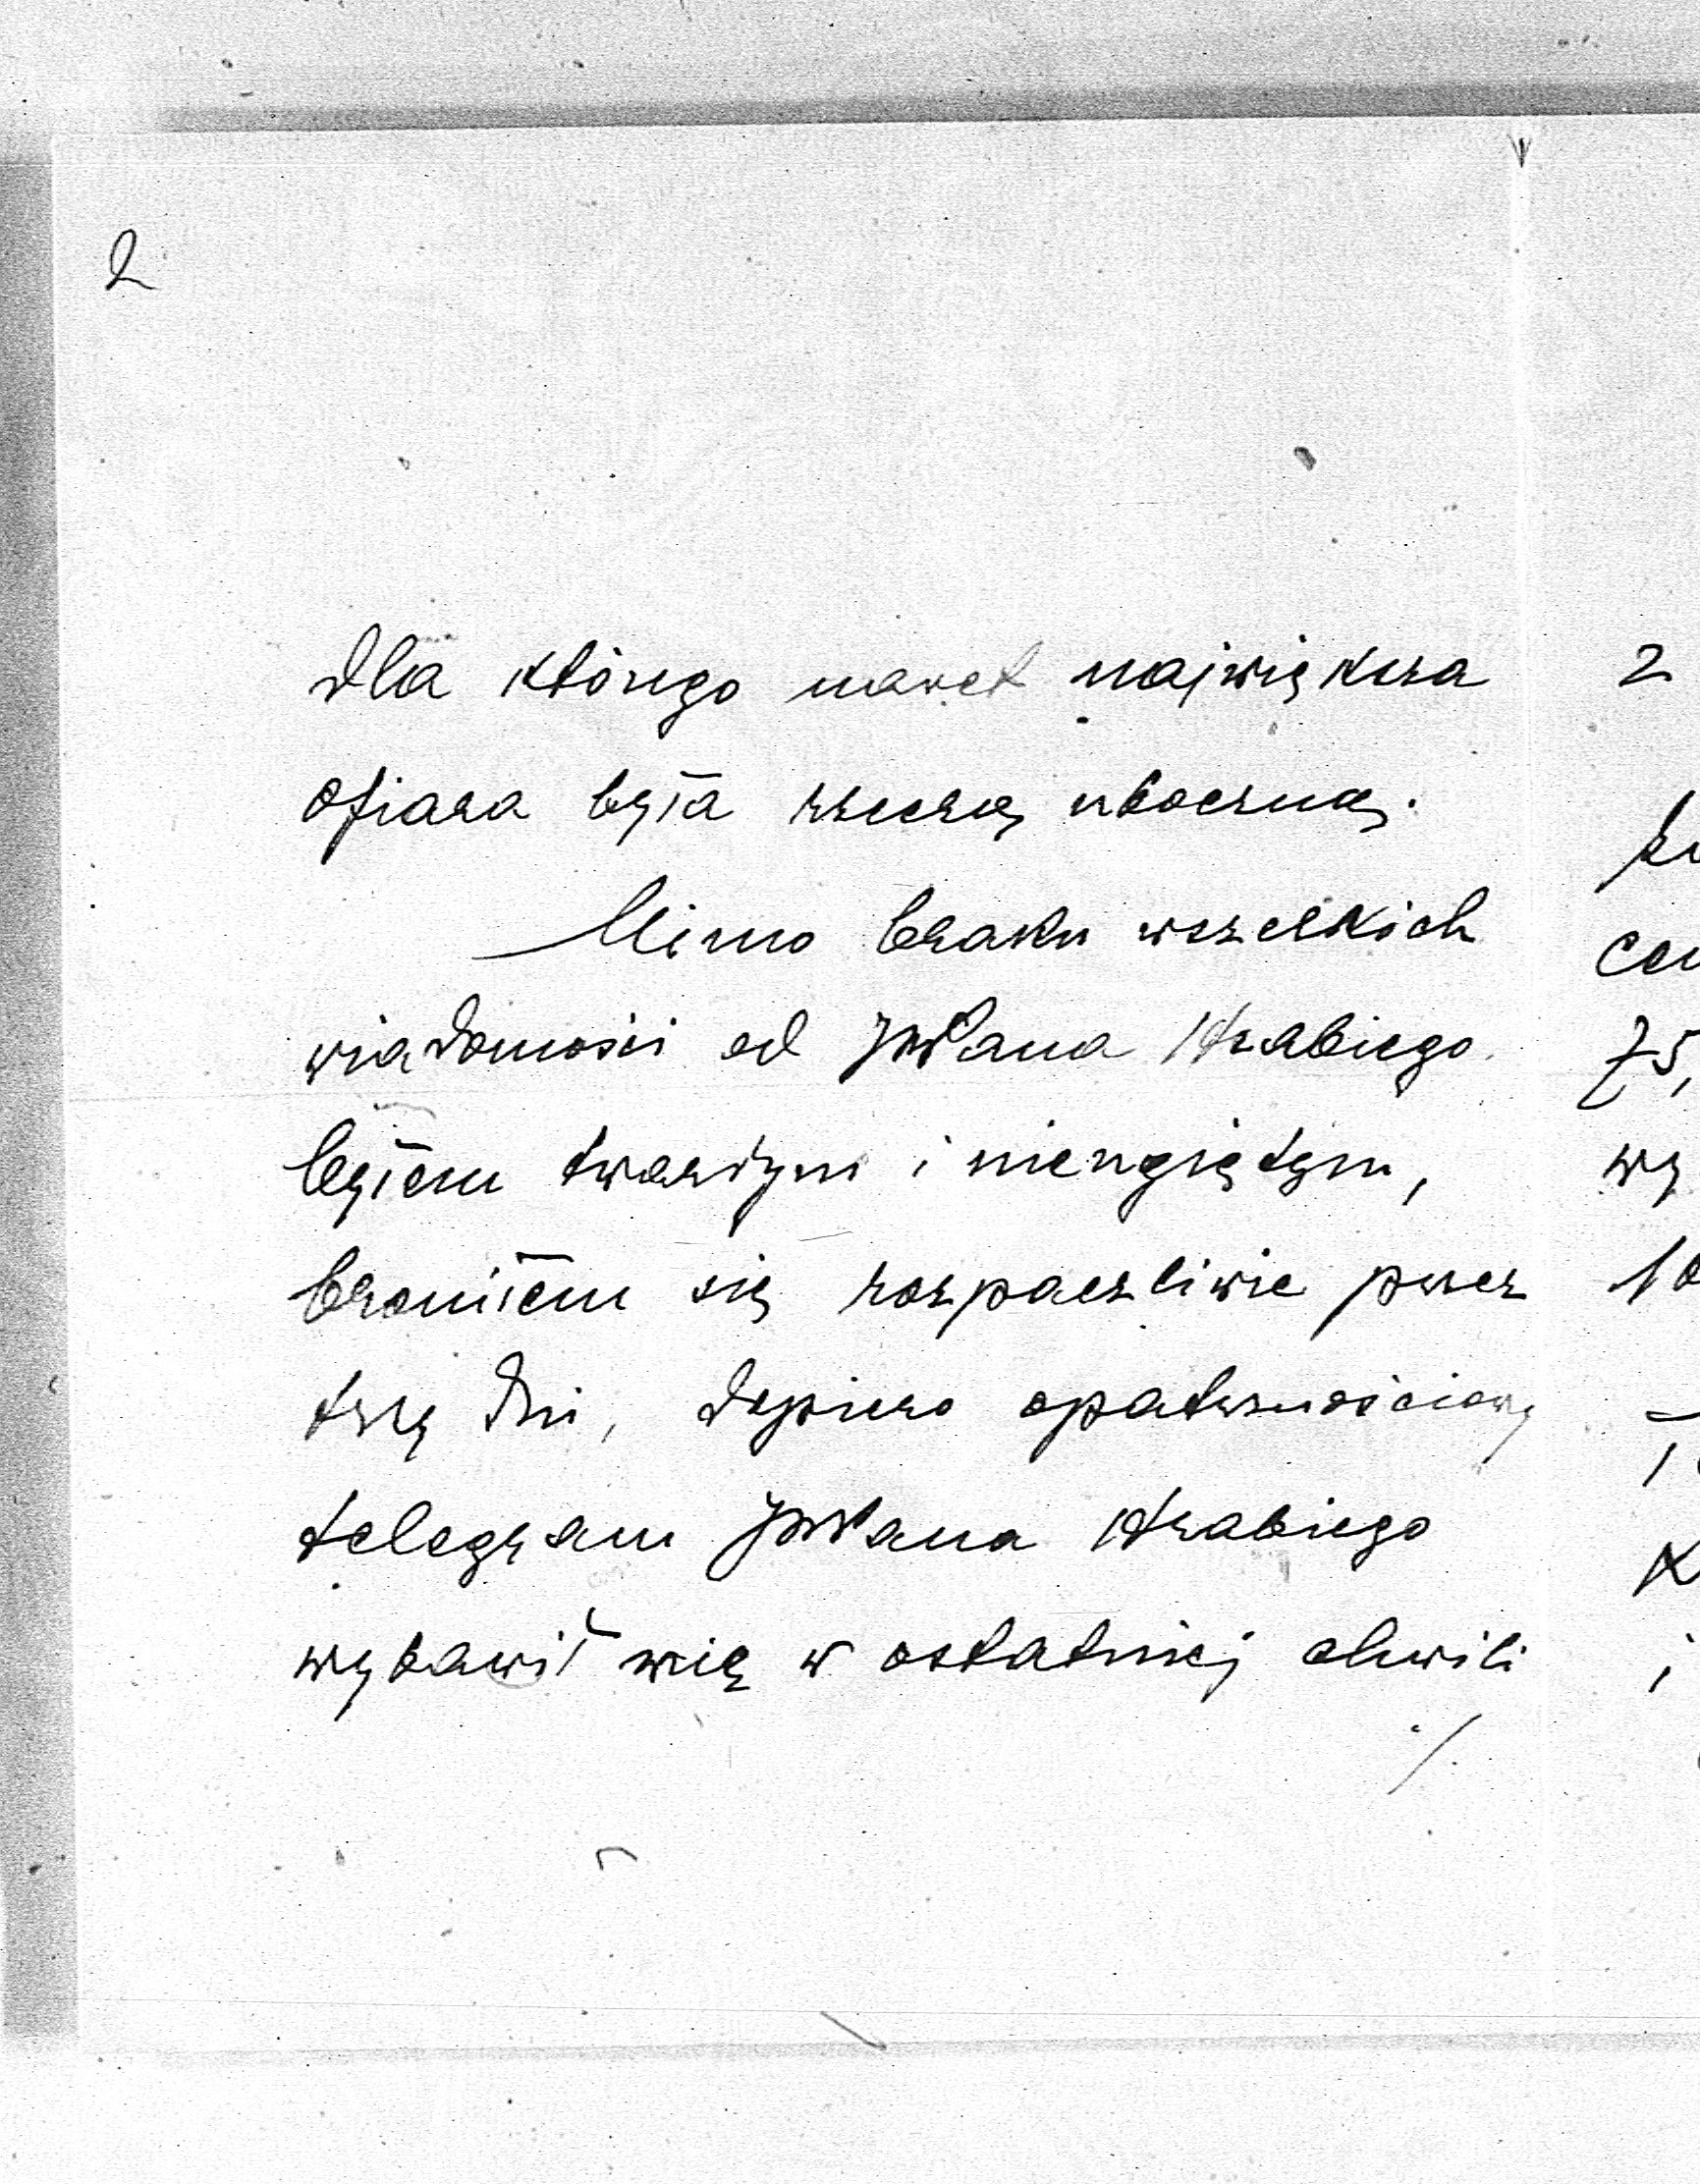 2
dla którego nawet największa
ofiara była rzeczą uboczną.
Mimo braku wszelkich
wiadomości od JWPana Hrabiego
byłem twardym i nieugiętym,
broniłem się rozpaczliwie przez
trzy dni, dopiero opatrznościowy
telegram JWPana Hrabiego
wybawił mię w ostatniej chwili
./.
2
cen
75,
wy
10
K
i